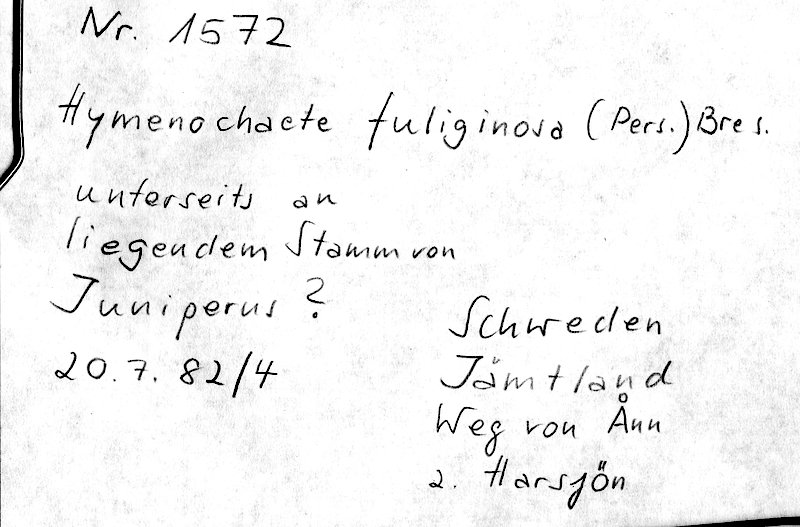 Nr. 1572
Hymenochaete fuliginosa (Pers.) Bres.
unterseits an
liegendem Stamm von
Juniperus ?
20. 7. 82/4
Schweden
Jämtland
Weg von Ånn
z. Harsjön